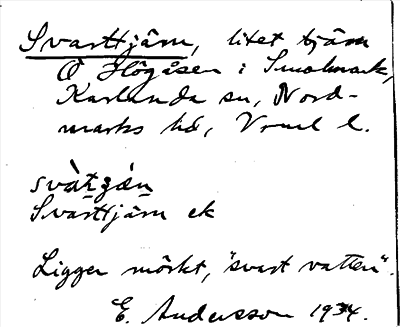 Svarttjärn, litet tjärn
Ö Högåsen i Smolmark,
Karlanda sn, Nord-
marks hd, Vrml l.
Svarttjärn ek
Ligger mörkt, "svart vatten".
E. Andersson 1934.